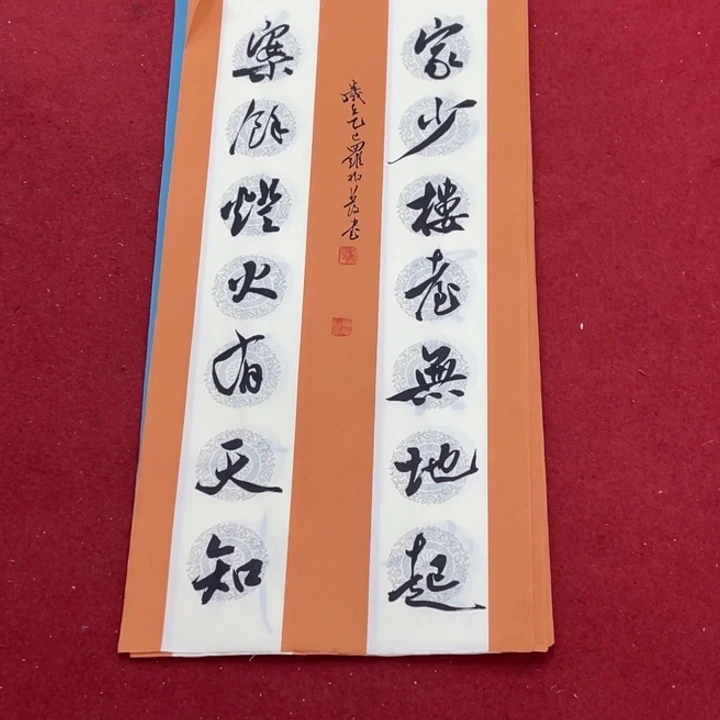 家少樓臺無地起
案餘燈火有天知
歲在乙巳羅
書